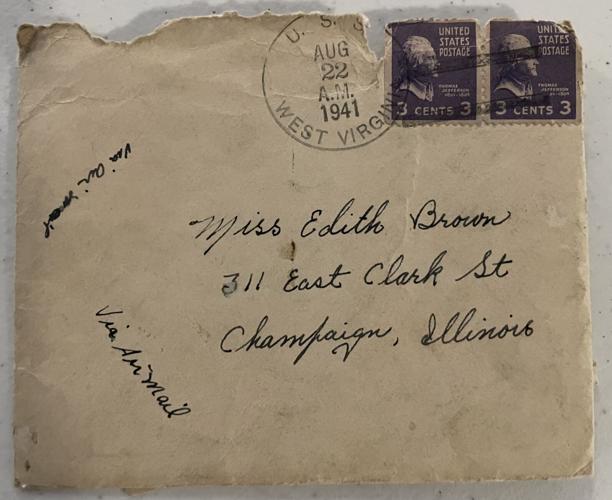 U. S. S.
AUG
22
A.M.
1941
WEST VIRGINIA
UNITED
STATES
POSTAGE
THOMAS
JEFFERSON
3 CENTS 3
UNITED
STATES
POSTAGE
THOMAS
JEFFERSON
3 CENTS 3
Via Air Mail
Miss Edith Brown
311 East Clark St
Champaign, Illinois
Via Air Mail